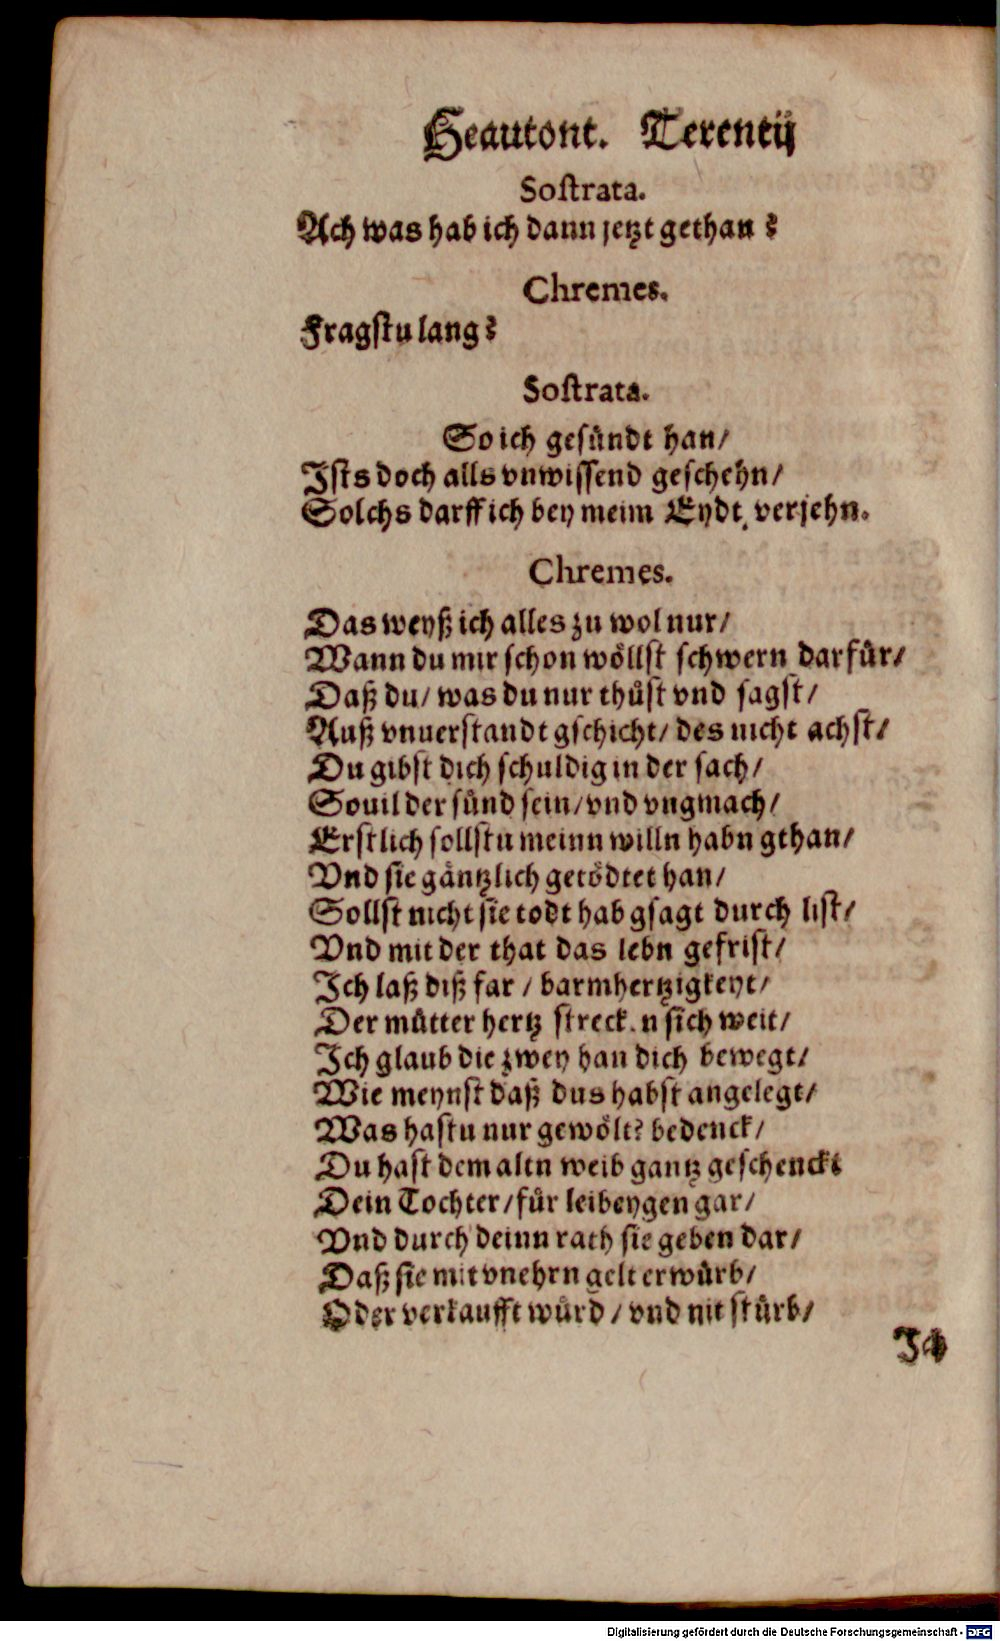 Heautont. Terentij
Sostrata.
Ach was hab ich dann jetzt gethan?
Chremes.
Fragstu lang?
Sostrata.
So ich gesündt han/
Ists doch alls vnwissend geschehn/
Solchs darff ich bey meim Eydt verjehn.
Chremes.
Das weyß ich alles zu wol nur/
Wann du mir schon wöllst schwern darfür/
Daß du/ was du nur thůst vnd sagst/
Auß vnuerstandt gschicht/ des nicht achst/
Du gibst dich schuldig in der sach/
Souil der sünd sein/ vnd vngmach/
Erstlich sollstu meinn willn habn gthan/
Vnd sie gäntzlich getödtet han/
Sollst nicht sie todt hab gsagt durch list/
Vnd mit der that das lebn gefrist/
Ich laß diß far / barmhertzigkeyt/
Der můtter hertz streck.n sich weit/
Ich glaub die zwey han dich bewegt/
Wie meynst daß dus habst angelegt/
Was hastu nur gewölt? bedenck/
Du hast dem altn weib gantz geschenckt
Dein Tochter/ für leibeygen gar/
Vnd durch deinn rath sie geben dar/
Daß sie mit vnehrn gelt erwürb/
Oder verkaufft würd / vnd nit stürb/
Digitalisierung gefördert durch die Deutsche Forschungsgemeinschaft - DFG